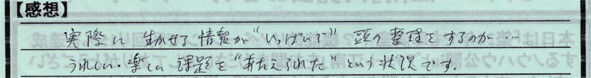 【感想】
実際に生かせる情報が"いっぱいで"頭の整理をするのが…
うれしい・楽しい課題を"あたえられた"という状況です。